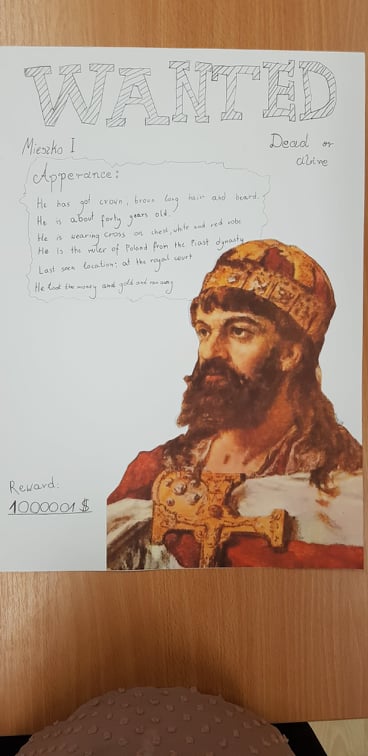 WANTED
Mieszko I
Dead or
alive
Apperance:
He has got crown, brown long hair and beard.
He is about forty years old.
He is wearing cross on chest, white and red robe
He is the ruler of Poland from the Piast dynasty
Last seen location: at the royal court
He took the money and gold and run away
Reward:
1000001 $